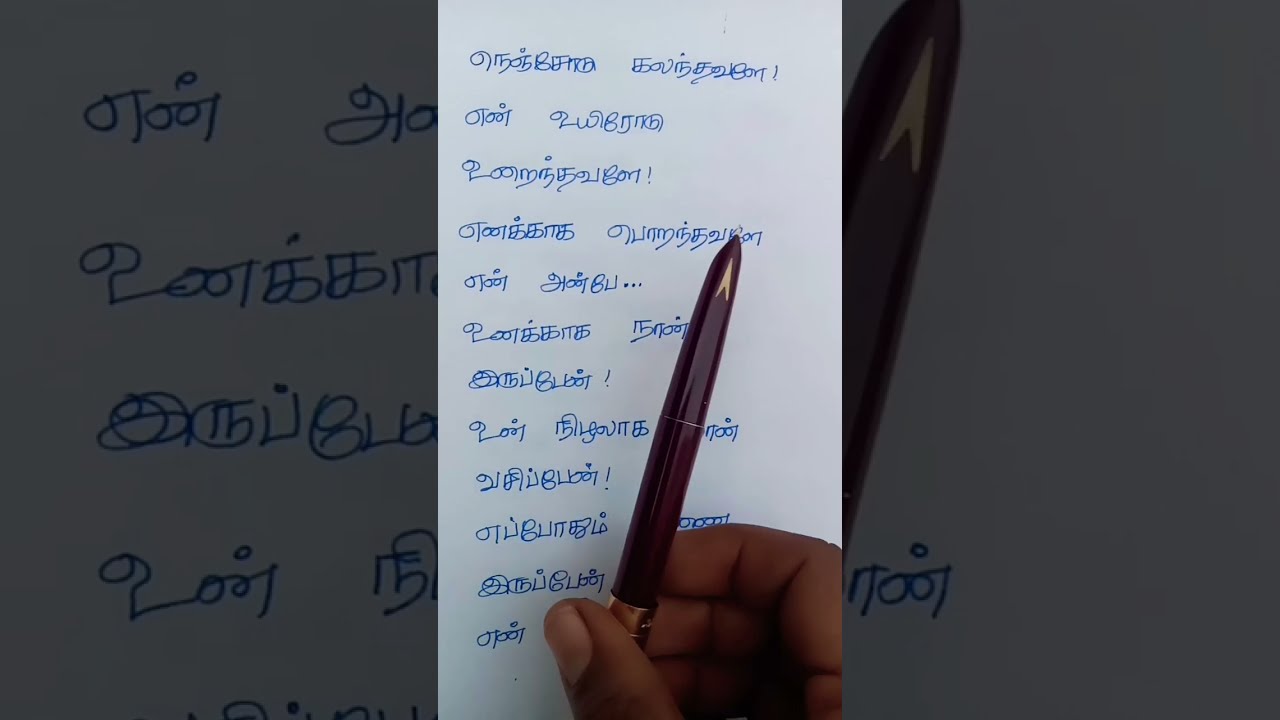 நெஞ்சோடு கலந்தவளே!
என் உயிரோடு
உறைந்தவளே!
எனக்காக பொறந்தவளே
என் அன்பே...
உனக்காக நான்
இருப்பேன்!
உன் நிழலாக
வசிப்பேன்!
எப்போதும்
இருப்பேன்
என்